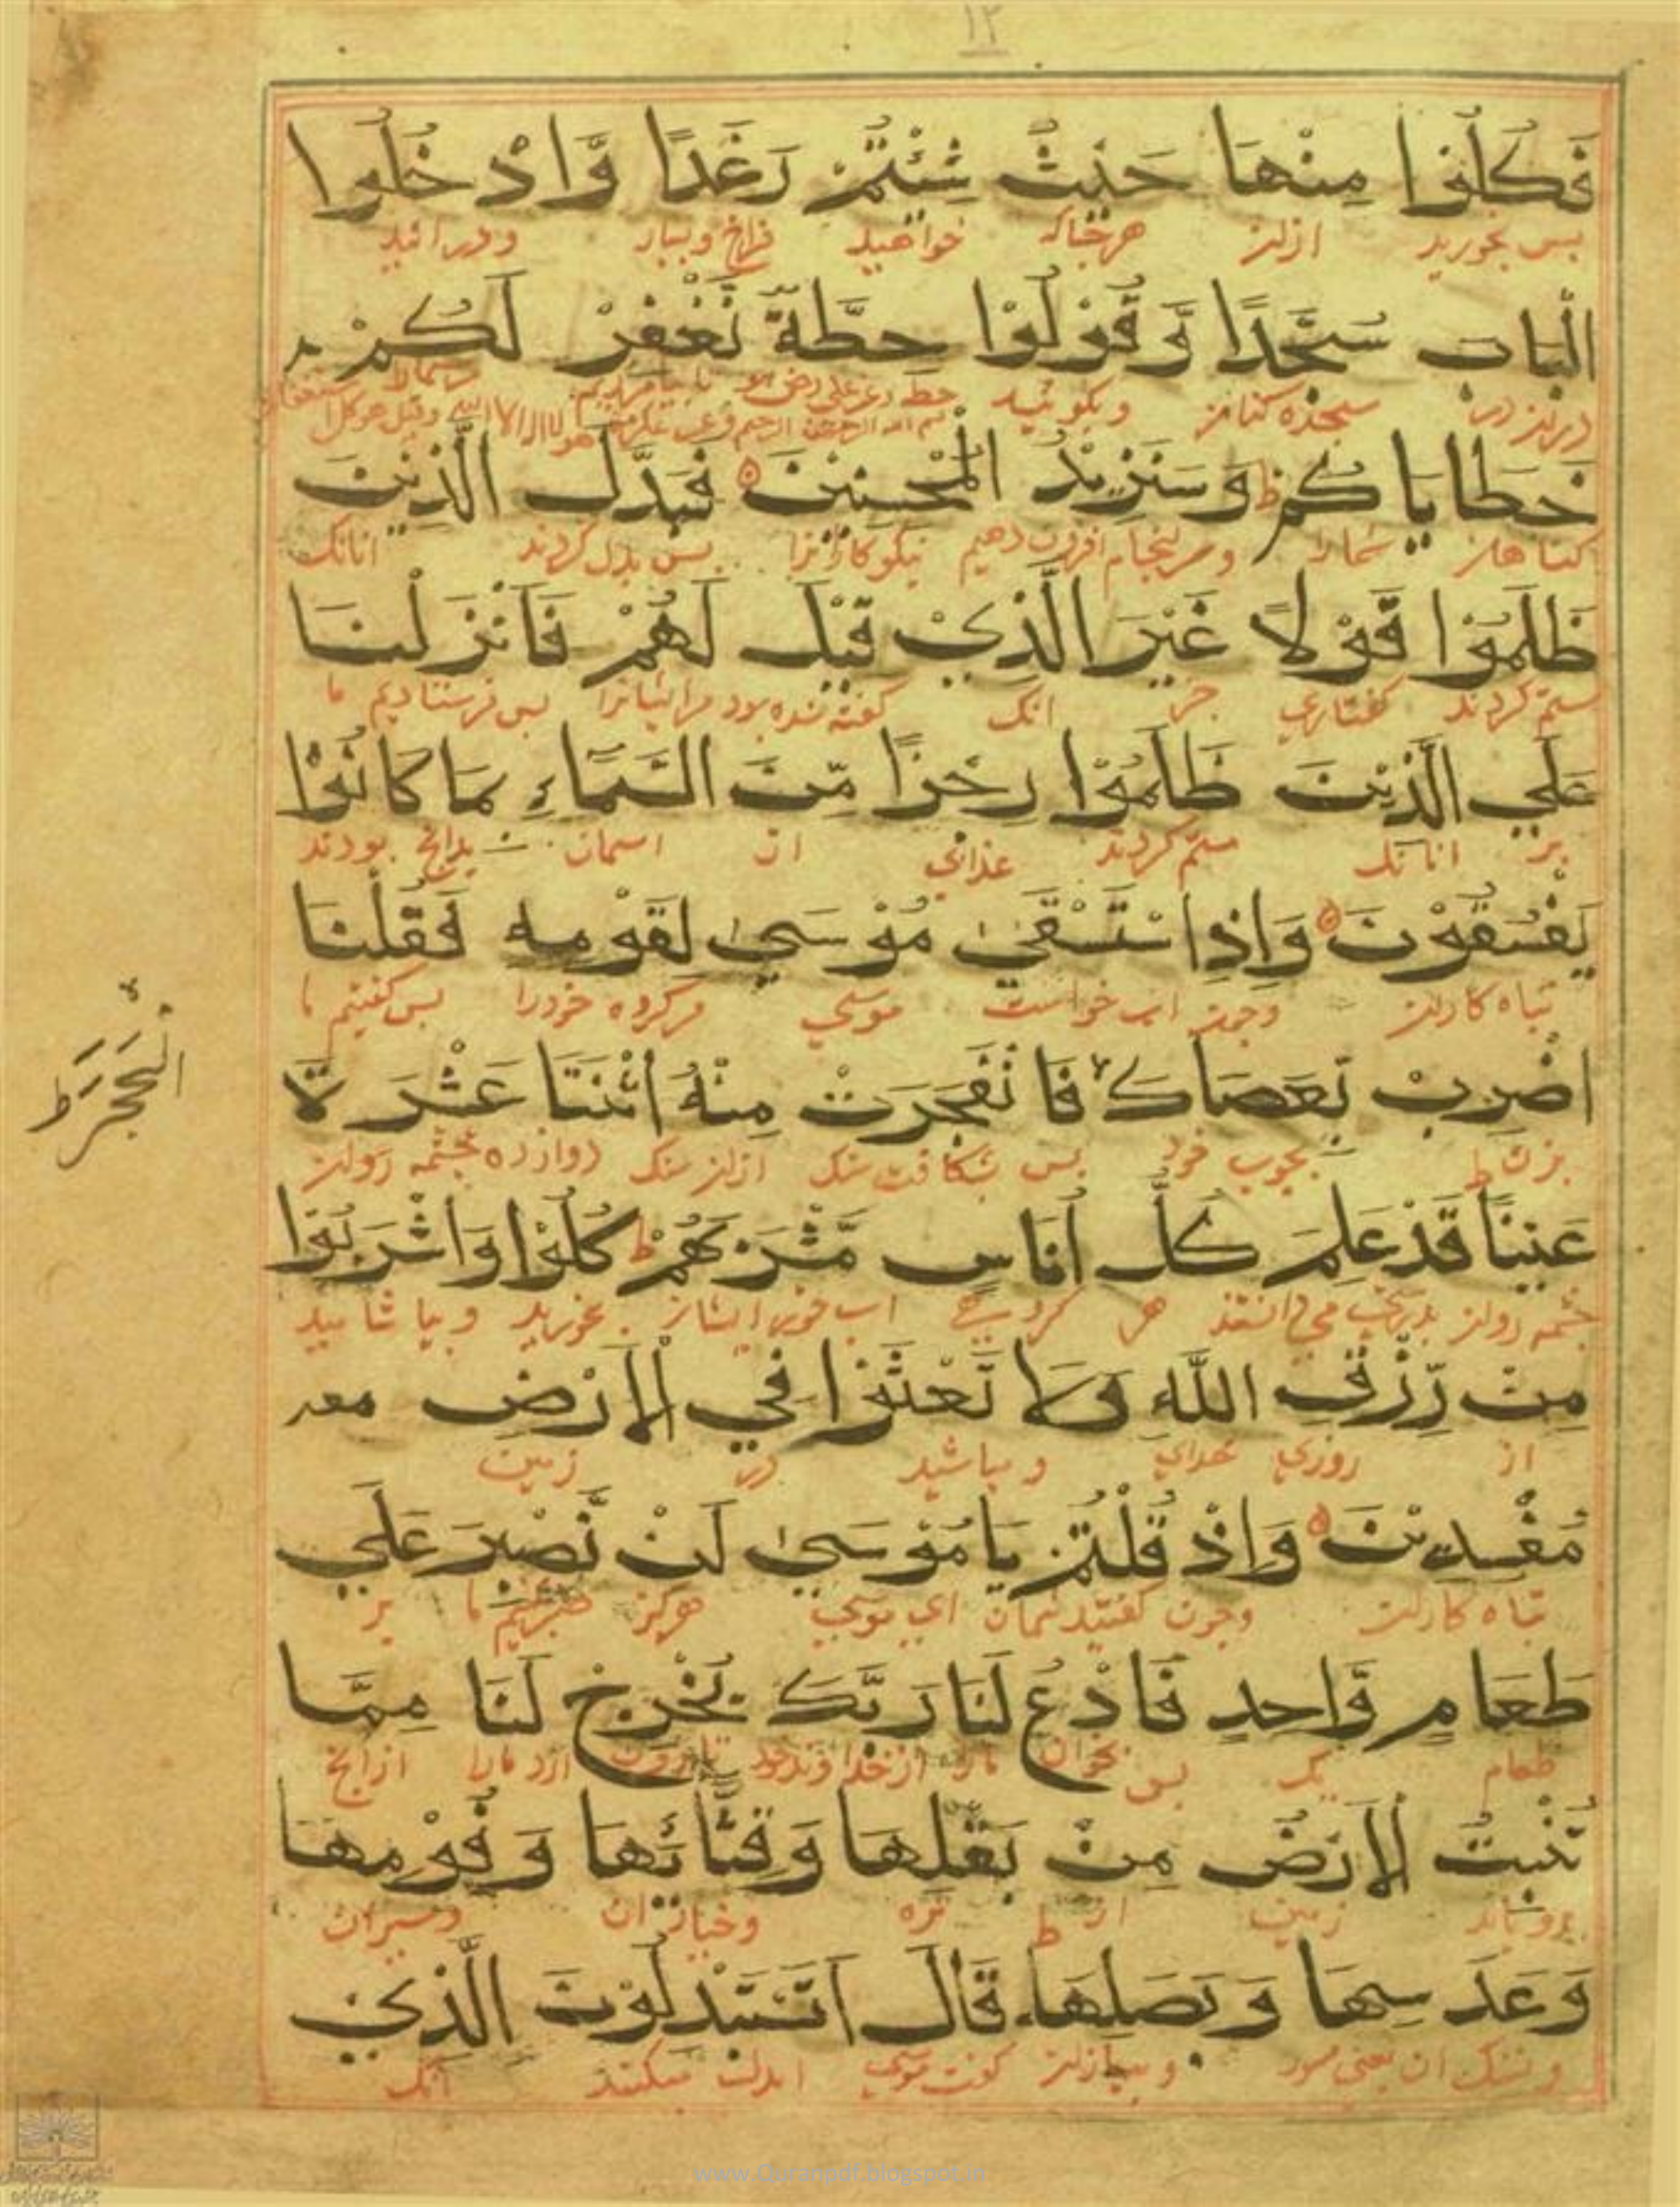 ١٢
فَكُلُوْا مِنْهَا حَيْثُ شِئْتُمْ رَغَدًا وَّادْخُلُوا
پس بخورید ازان هرجا که خواهید فراخ و بسیار و در ائید
الْبَابَ سُجَّدًا وَّقُوْلُوْا حِطَّةٌ نَّغْفِرْ لَكُمْ
سجده کنان و بکوئید
خَطَايَاكُمْ ط وَسَنَزِيْدُ الْمُحْسِنِيْنَ فَبَدَّلَ الَّذِيْنَ
کناهان شمارا و سرانجام افزون دهیم نیکوکارانرا پس بدل کردند انانک
ظَلَمُوْا قَوْلًا غَيْرَ الَّذِيْ قِيْلَ لَهُمْ فَاَنْزَلْنَا
ستم کردند کفتاری جز انک کفته شده بود مرایشانرا پس فرستادیم ما
عَلَي الَّذِيْنَ ظَلَمُوْا رِجْزًا مِّنَ السَّمَآءِ بِمَا كَانُوْا
بر انانک ستم کردند عذابی از اسمان بدانچ بودند
يَفْسُقُوْنَ وَاِذِ اسْتَسْقَىٰ مُوْسَىٰ لِقَوْمِهِ فَقُلْنَا
تباه کاران وچون اب خواست موسی مرکروه خودرا پس کفتیم ما
اضْرِبْ بِّعَصَاكَ فَانْفَجَرَتْ مِنْهُ اثْنَتَا عَشْرَةَ
الْحَجَرَ ط
بزن بچوب خود پس شکافت سنک ازان سنک دوازده چشمه روان
عَيْنًا قَدْ عَلِمَ كُلُّ اُنَاسٍ مَّشْرَبَهُمْ ط كُلُوْا وَاشْرَبُوْا
چشمه روان بدرستی می دانستند هر کروهی اب خور ایشان بخورید و بیاشامید
مِنْ رِّزْقِ اللّٰهِ وَلَا تَعْثَوْا فِي الْاَرْضِ
از روزی خدای و مباشید در زمین
مُفْسِدِيْنَ وَاِذْ قُلْتُمْ يَا مُوْسَىٰ لَنْ نَّصْبِرَ عَلَي
تباه کاران وچون کفتید شمایان ای موسی هرکز صبر نکنیم ما بر
طَعَامٍ وَّاحِدٍ فَادْعُ لَنَا رَبَّكَ يُخْرِجْ لَنَا مِمَّا
طعام یک پس بخوان مارا از خداوند خود تا بیرون ارد مارا ازانچ
تُنْبِتُ الْاَرْضُ مِنْ بَقْلِهَا وَقِثَّائِهَا وَفُوْمِهَا
برویاند زمین از تره وخیار ان وسیر ان
وَعَدَسِهَا وَبَصَلِهَا ط قَالَ اَتَسْتَبْدِلُوْنَ الَّذِيْ
ونسک ان یعنی و پیاز ان کفت موسی ا بدل میکنید انک
www.Quranpdf.blogspot.in